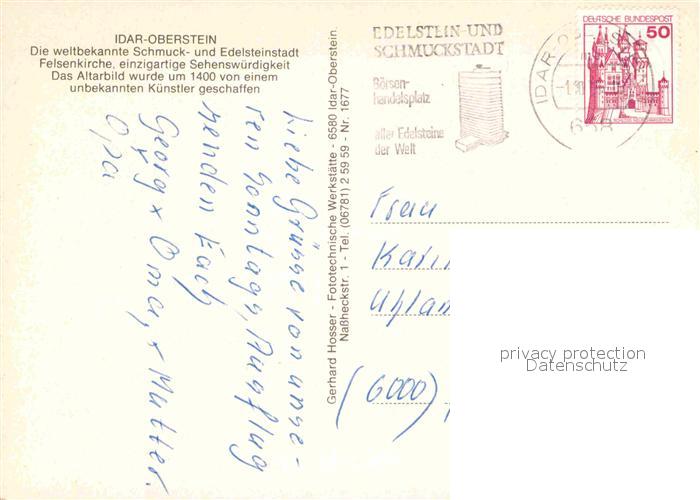 IDAR-OBERSTEIN
Die weltbekannte Schmuck- und Edelsteinstadt
Felsenkirche, einzigartige Sehenswürdigkeit
Das Altarbild wurde um 1400 von einem
unbekannten Künstler geschaffen
Liebe Grüsse von unse-
ren Sonntags, Ausflug
senden Euch
Georg x Oma, x Mutter.
Opa
Gerhard Hosser - Fototechnische Werkstätte - 6580 Idar-Oberstein.
Naßheckstr. 1 - Tel. (06781) 2 59 59 - Nr. 1677
EDELSTEIN-UND
SCHMUCKSTADT
Börsen-
handelsplatz
aller Edelsteine
der Welt
IDAR-O
658
DEUTSCHE BUNDESPOST
50
Frau
(6000)
privacy protection
Datenschutz